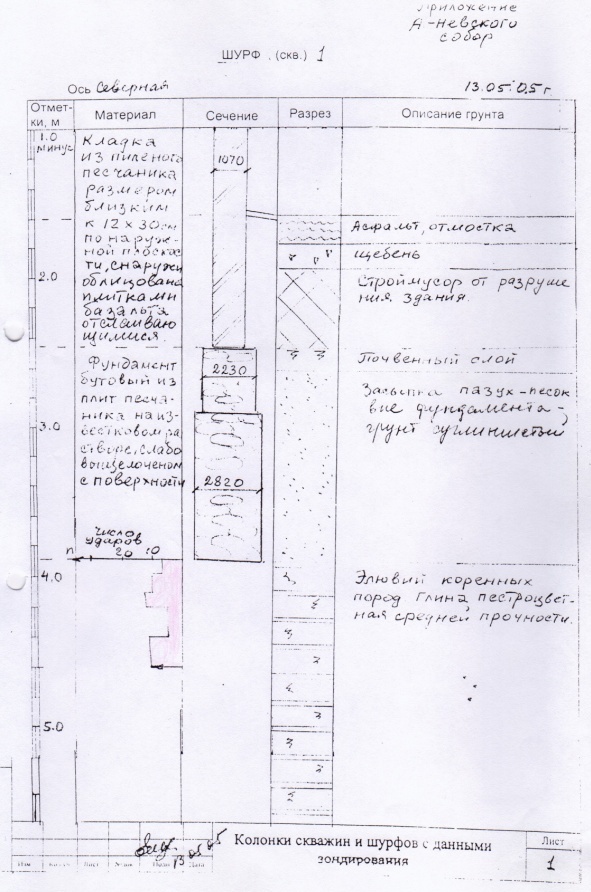 Приложение
А-Невского
собор
ШУРФ . (скв.) 1
Ось Северная
13.05.05г
Отмет-
ки, м
Материал
Сечение
Разрез
Описание грунта
1.0
минус
Кладка
из пиленого
песчаника
размером
близким
к 12 х 30см
по наруж-
ной плоскос
ти, снаружи
облицована
плитками
базальта
отслаиваю
щимися.
1070
Асфальт, отмостка
щебень
2.0
Строймусор от разруше
ния здания.
Фундамент
бутовый из
плит песча-
ника на из-
вестковом ра
створе, слабо
выщелоченом
с поверхности
2230
2820
Почвенный слой
3.0
Засыпка пазух-песок
вне фундамента-
грунт суглинистый
число
ударов
n
20
10
4.0
Элювий коренных
пород глина, пестроцвет-
ная средней прочности.
5.0
13 05 05
Изм
Лист
Дата
Колонки скважин и шурфов с данными
зондирования
Лист
1